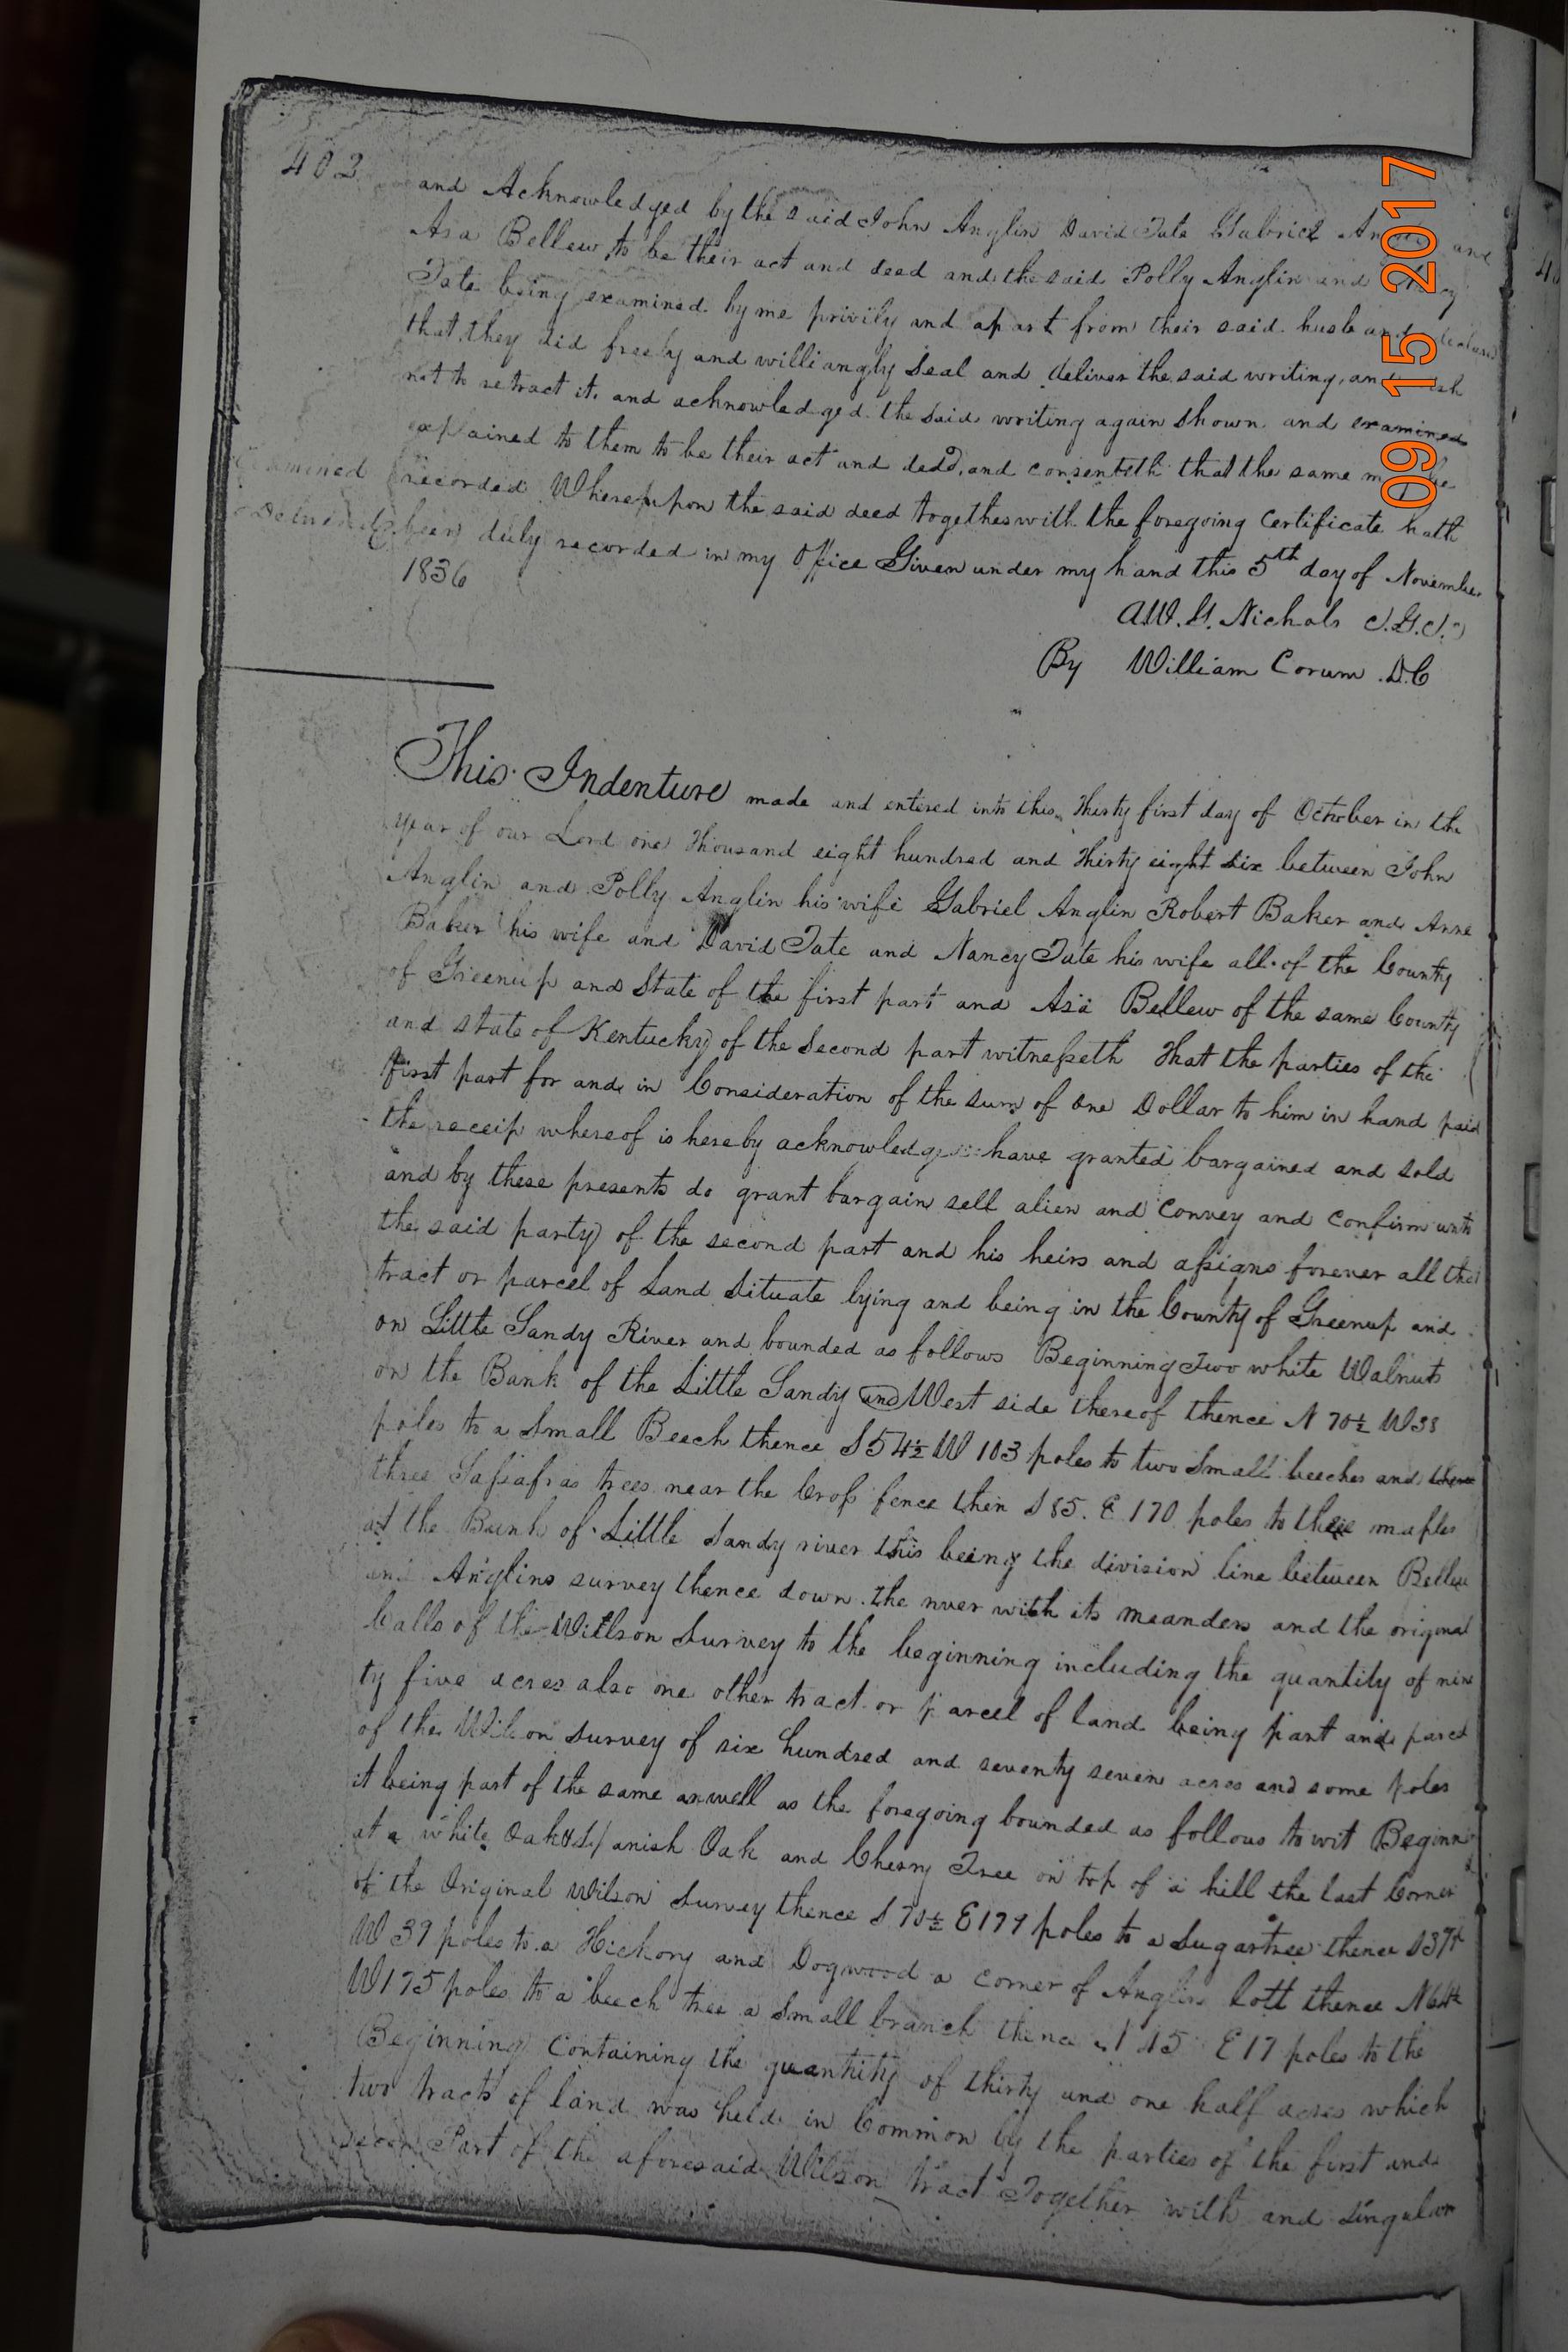 402
and Acknowledged by the said John Anglin David Tate Gabriel and
Asa Bellew to be their act and deed and the said Polly Anglin and
Tate being examined by me privily and apart from their said husband
that they did freely and williangly Seal and deliver the said writing, and
not to retract it, and acknowledged the said writing again shown and examined
explained to them to be their act and dedd, and consenteth that the same be
Examined recorded Whereupon the said deed together with the foregoing Certificate hath
been duly recorded in my Office Given under my hand this 5th day of November
1836
A.W. G. Nichols
By William Corum D.C
This Indenture made and entered into this Thirty first day of October in the
year of our Lord one Thousand eight hundred and Thirty eight six between John
Anglin and Polly Anglin his wife Gabriel Anglin Robert Baker and Anne
Baker his wife and David Tate and Nancy Tate his wife all of the County
of Greenup and State of the first part and Asa Bellew of the same County
and state of Kentucky of the Second part witnesseth That the parties of the
first part for and in Consideration of the sum of One Dollar to him in hand paid
the receip whereof is hereby acknowledge have granted bargained and sold
and by these presents do grant bargain sell alien and Convey and Confirm unto
the said party of the second part and his heirs and assigns forever all the
tract or parcel of Land Situate lying and being in the County of Greenup and
on Little Sandy River and bounded as follows Beginning Two white Walnuts
on the Bank of the Little Sandy and West side thereof thence N 70½ W 38
poles to a Small Beech thence S 54½ W 103 poles to two Small beeches and
three Sassafras trees near the Cross fence then S 85. E 170 poles to three maples
at the Bank of Little Sandy river this being the division line between Bellew
and Anglins survey thence down the river with its meanders and the original
Calls of the Willson Survey to the beginning including the quantity of nine
ty five acres also one other tract or parcel of land being part and parcel
of the Wilson Survey of six hundred and seventy seven acres and some poles
it being part of the same as well as the foregoing bounded as follows to wit Beginn
at a white Oak & Spanish Oak and Cherry Tree on top of a hill the last Corner
of the Original Wilson Survey thence S 70½ E 177 poles to a Sugartree thence S 37½
W 39 poles to a Hickory and Dogwood a corner of Anglins Lott thence N 64½
W 175 poles to a beech tree a Small branch thence 45 E 17 poles to the
Beginning Containing the quantity of thirty and one half acres which
two tracts of land was held in Common by the parties of the first and
Part of the aforesaid Wilson tract Together with and Singular
09 15 2017